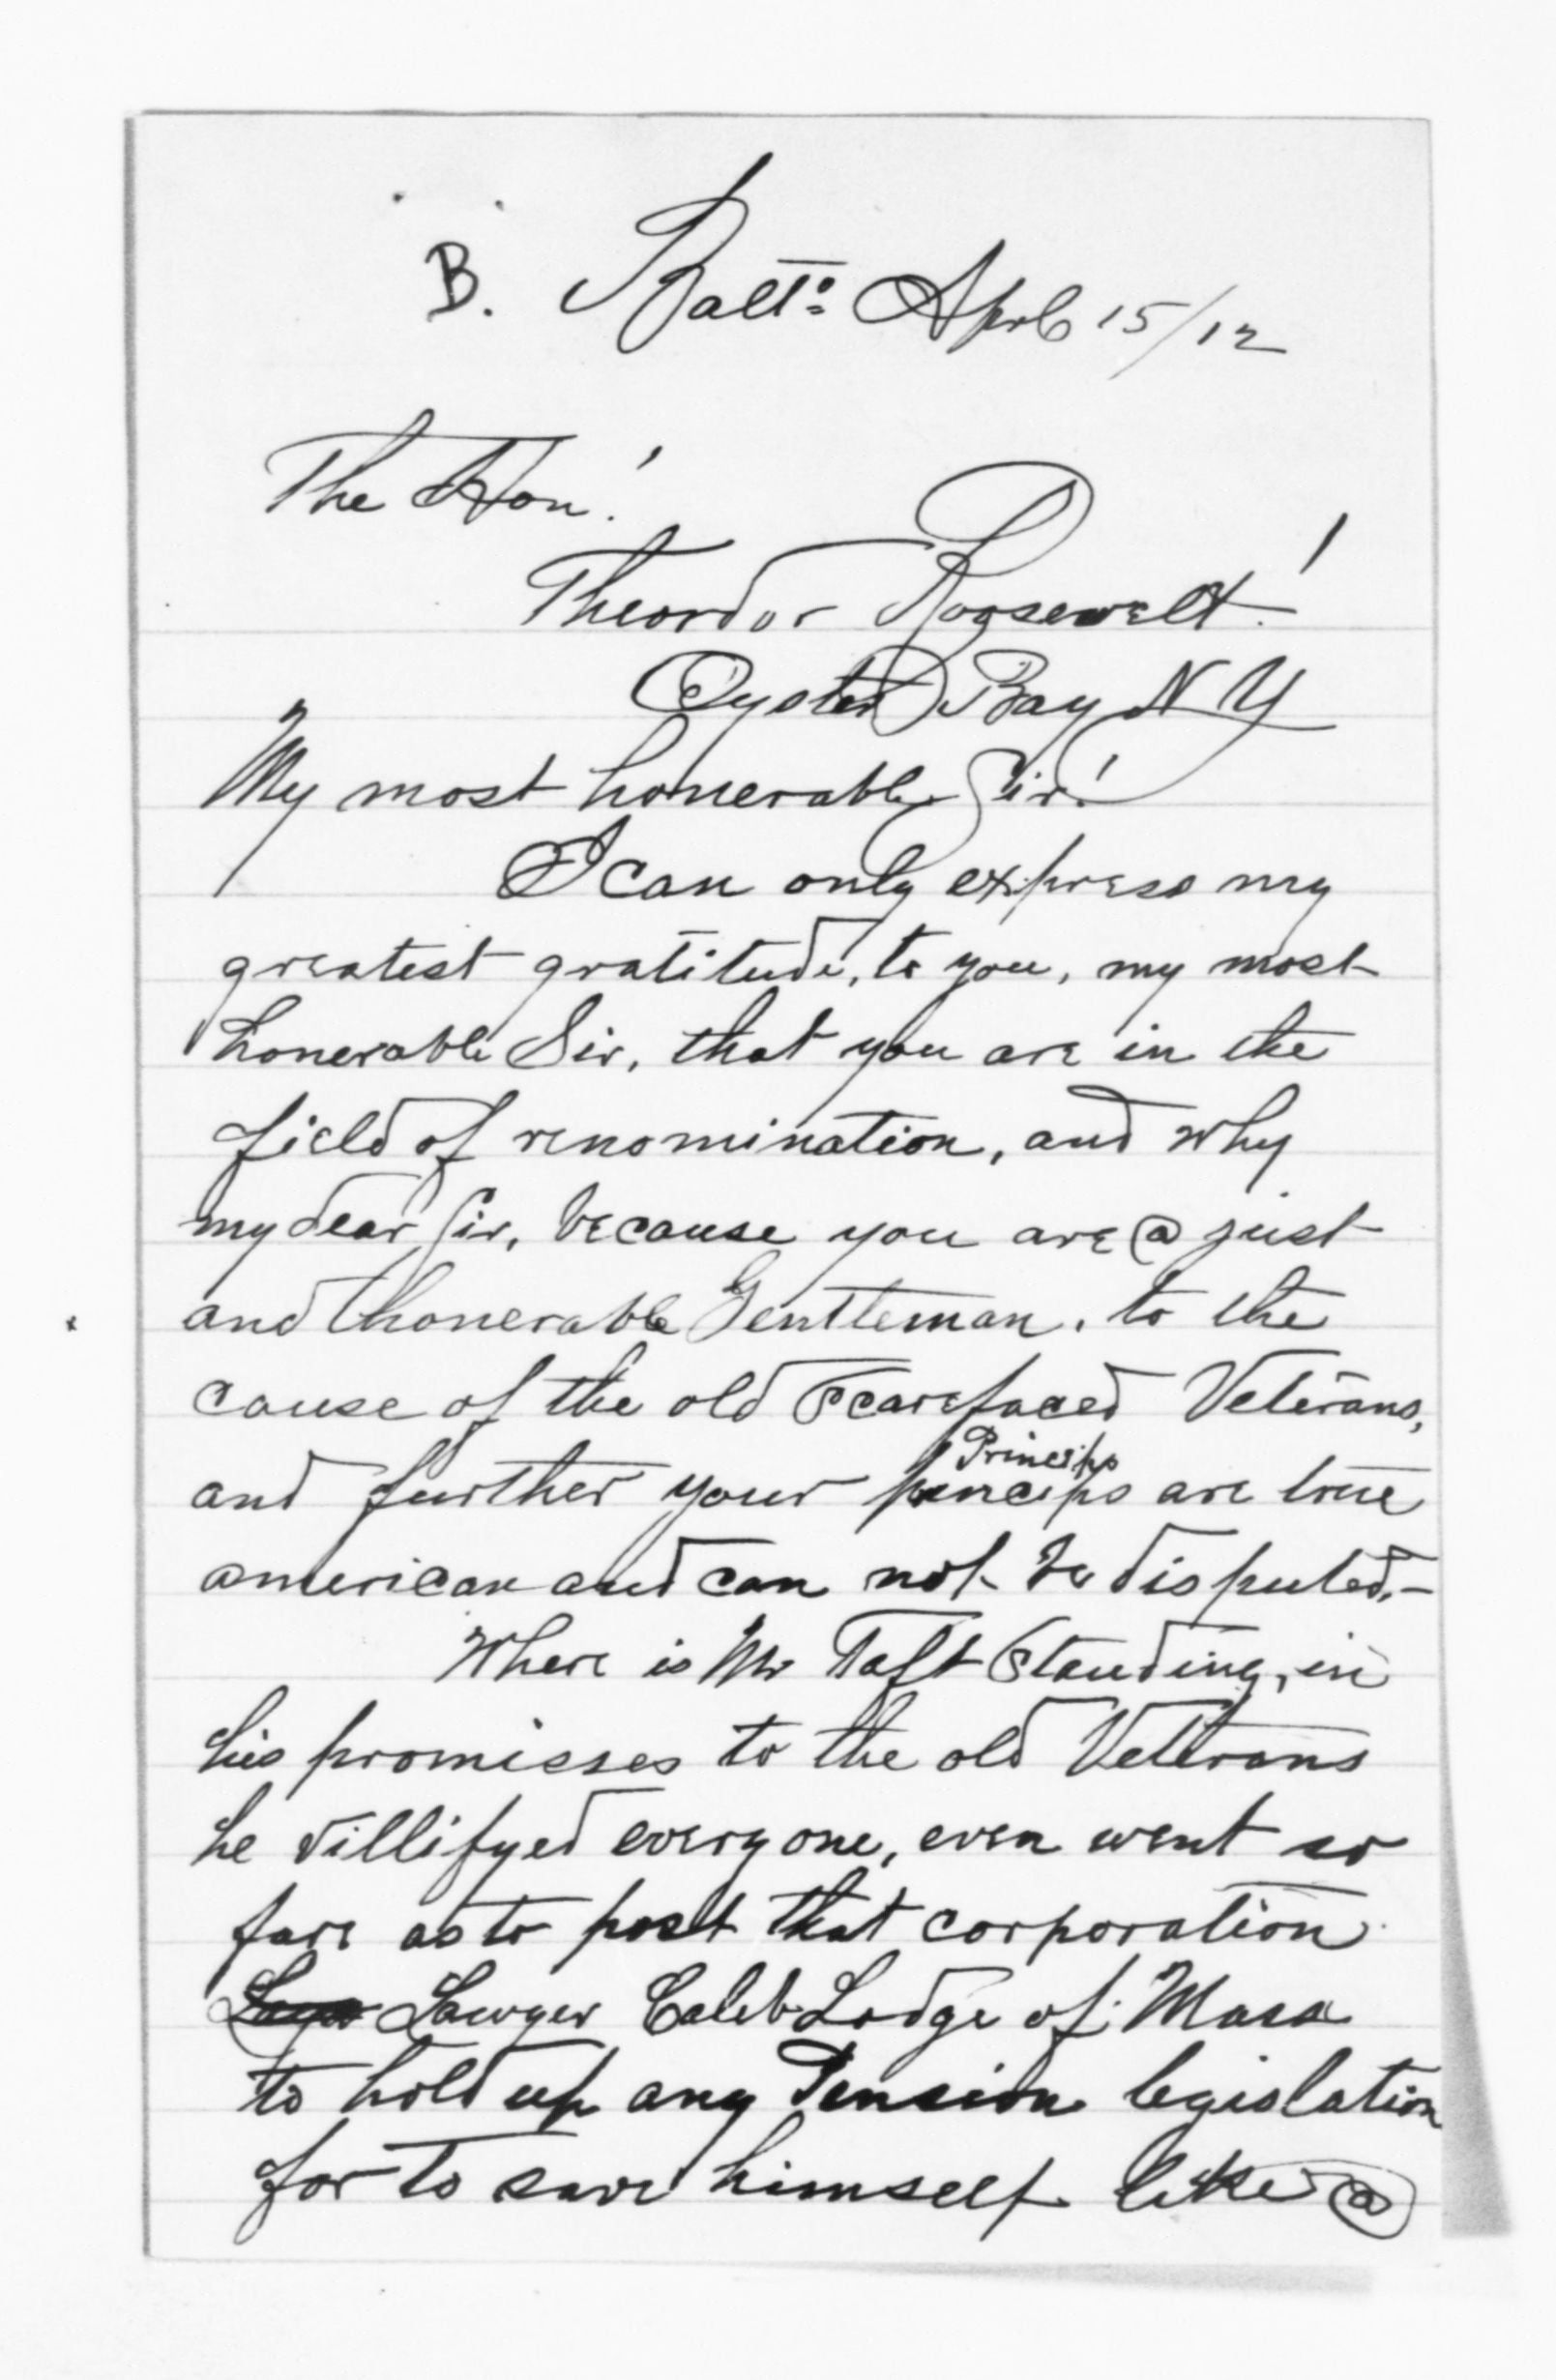 B. Balto: Aprl 15/12
The Hon!
Theordor Roosevelt!
Oyster Bay N Y
My most honerable Sir!
I can only express my
greatest gratitude, to you, my most
honerable Sir, that you are in the
field of renomination, and why
my dear Sir, because you are @ just
and honerable Gentleman, to the
cause of the old Scarefaced Veterans,
Princips
and further your princips are true
american and can not be disputed,-
Where is Mr Taft Standing, in
his promisses to the old Vetrans
he villifyed everyone, even went so
fare as to post that corporation
Lawyer Caleb Lodge of Mass
to hold up any Pension legislation
for to save himself like @